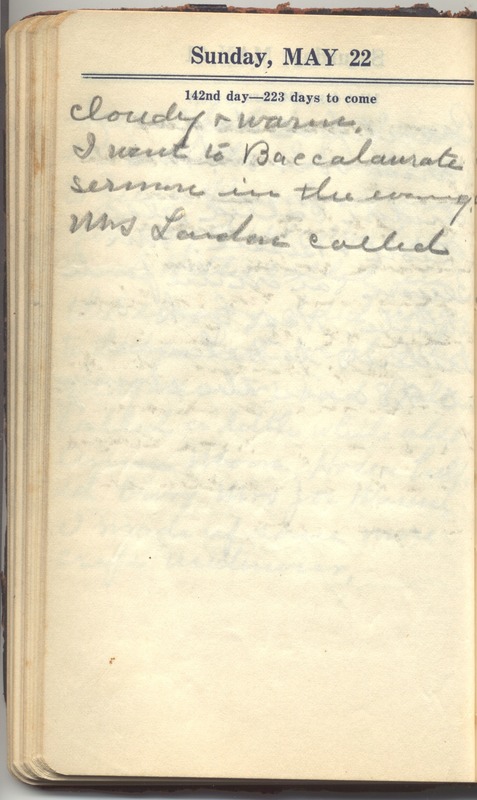 Sunday, MAY 22
142nd day—223 days to come
cloudy & warm.
I went to Baccalaurate
sermon in the evening
Mrs called